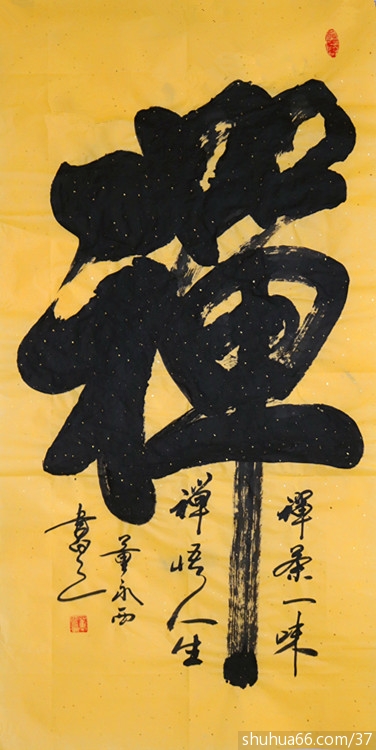 禪
禪茶一味
禪悟人生
董永西
書之
shuhua66.com/37